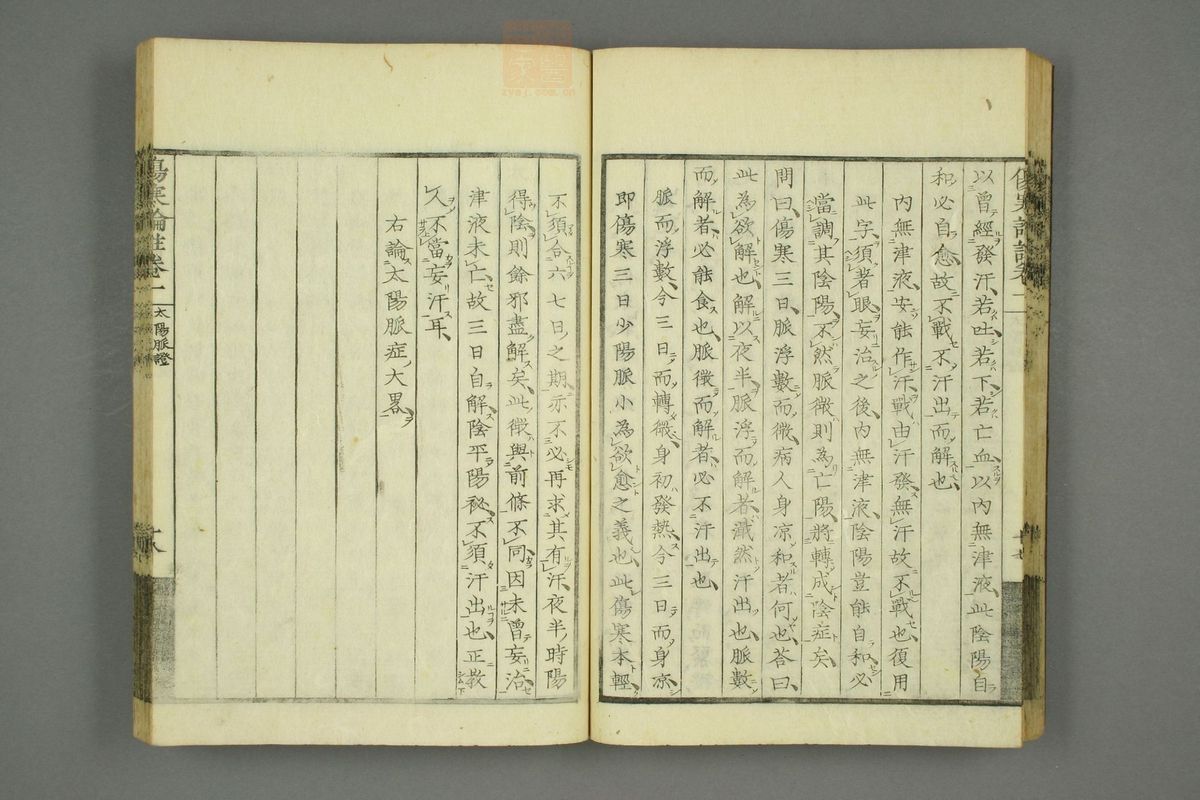 以曾經發汗若吐若下若亡血以内無津液此陰陽自
和必自愈故不戰不汗出而解也
内無津液安能作汗戰由汗發無汗故不戰也復用
此字須著眼妄治之後内無津液陰陽豈能自和必
當調其陰陽不然脈微則為亡陽將轉成陰症矣
問曰傷寒三日脈浮數而微病人身凉和者何也荅曰
此為欲解也解以夜半脈浮而解者濈然汗出也脈數
而解者必能食也脈微而解者必不汗出也
脈而浮數今三日而轉微身初發熱今三日而身凉
即傷寒三日少陽脈小為欲愈之義也此傷寒本輕
不須合六七日之期亦不必再求其有汗夜半時陽
得陰則餘邪盡解矣此微與前條不同因未曾妄治
津液未亡故三日自解陰平陽祕不須汗出也正教
人不當妄汗耳
右論太陽脈症大畧
傷寒論註卷二
太陽脈證
十八
十七
zysj.com.cn